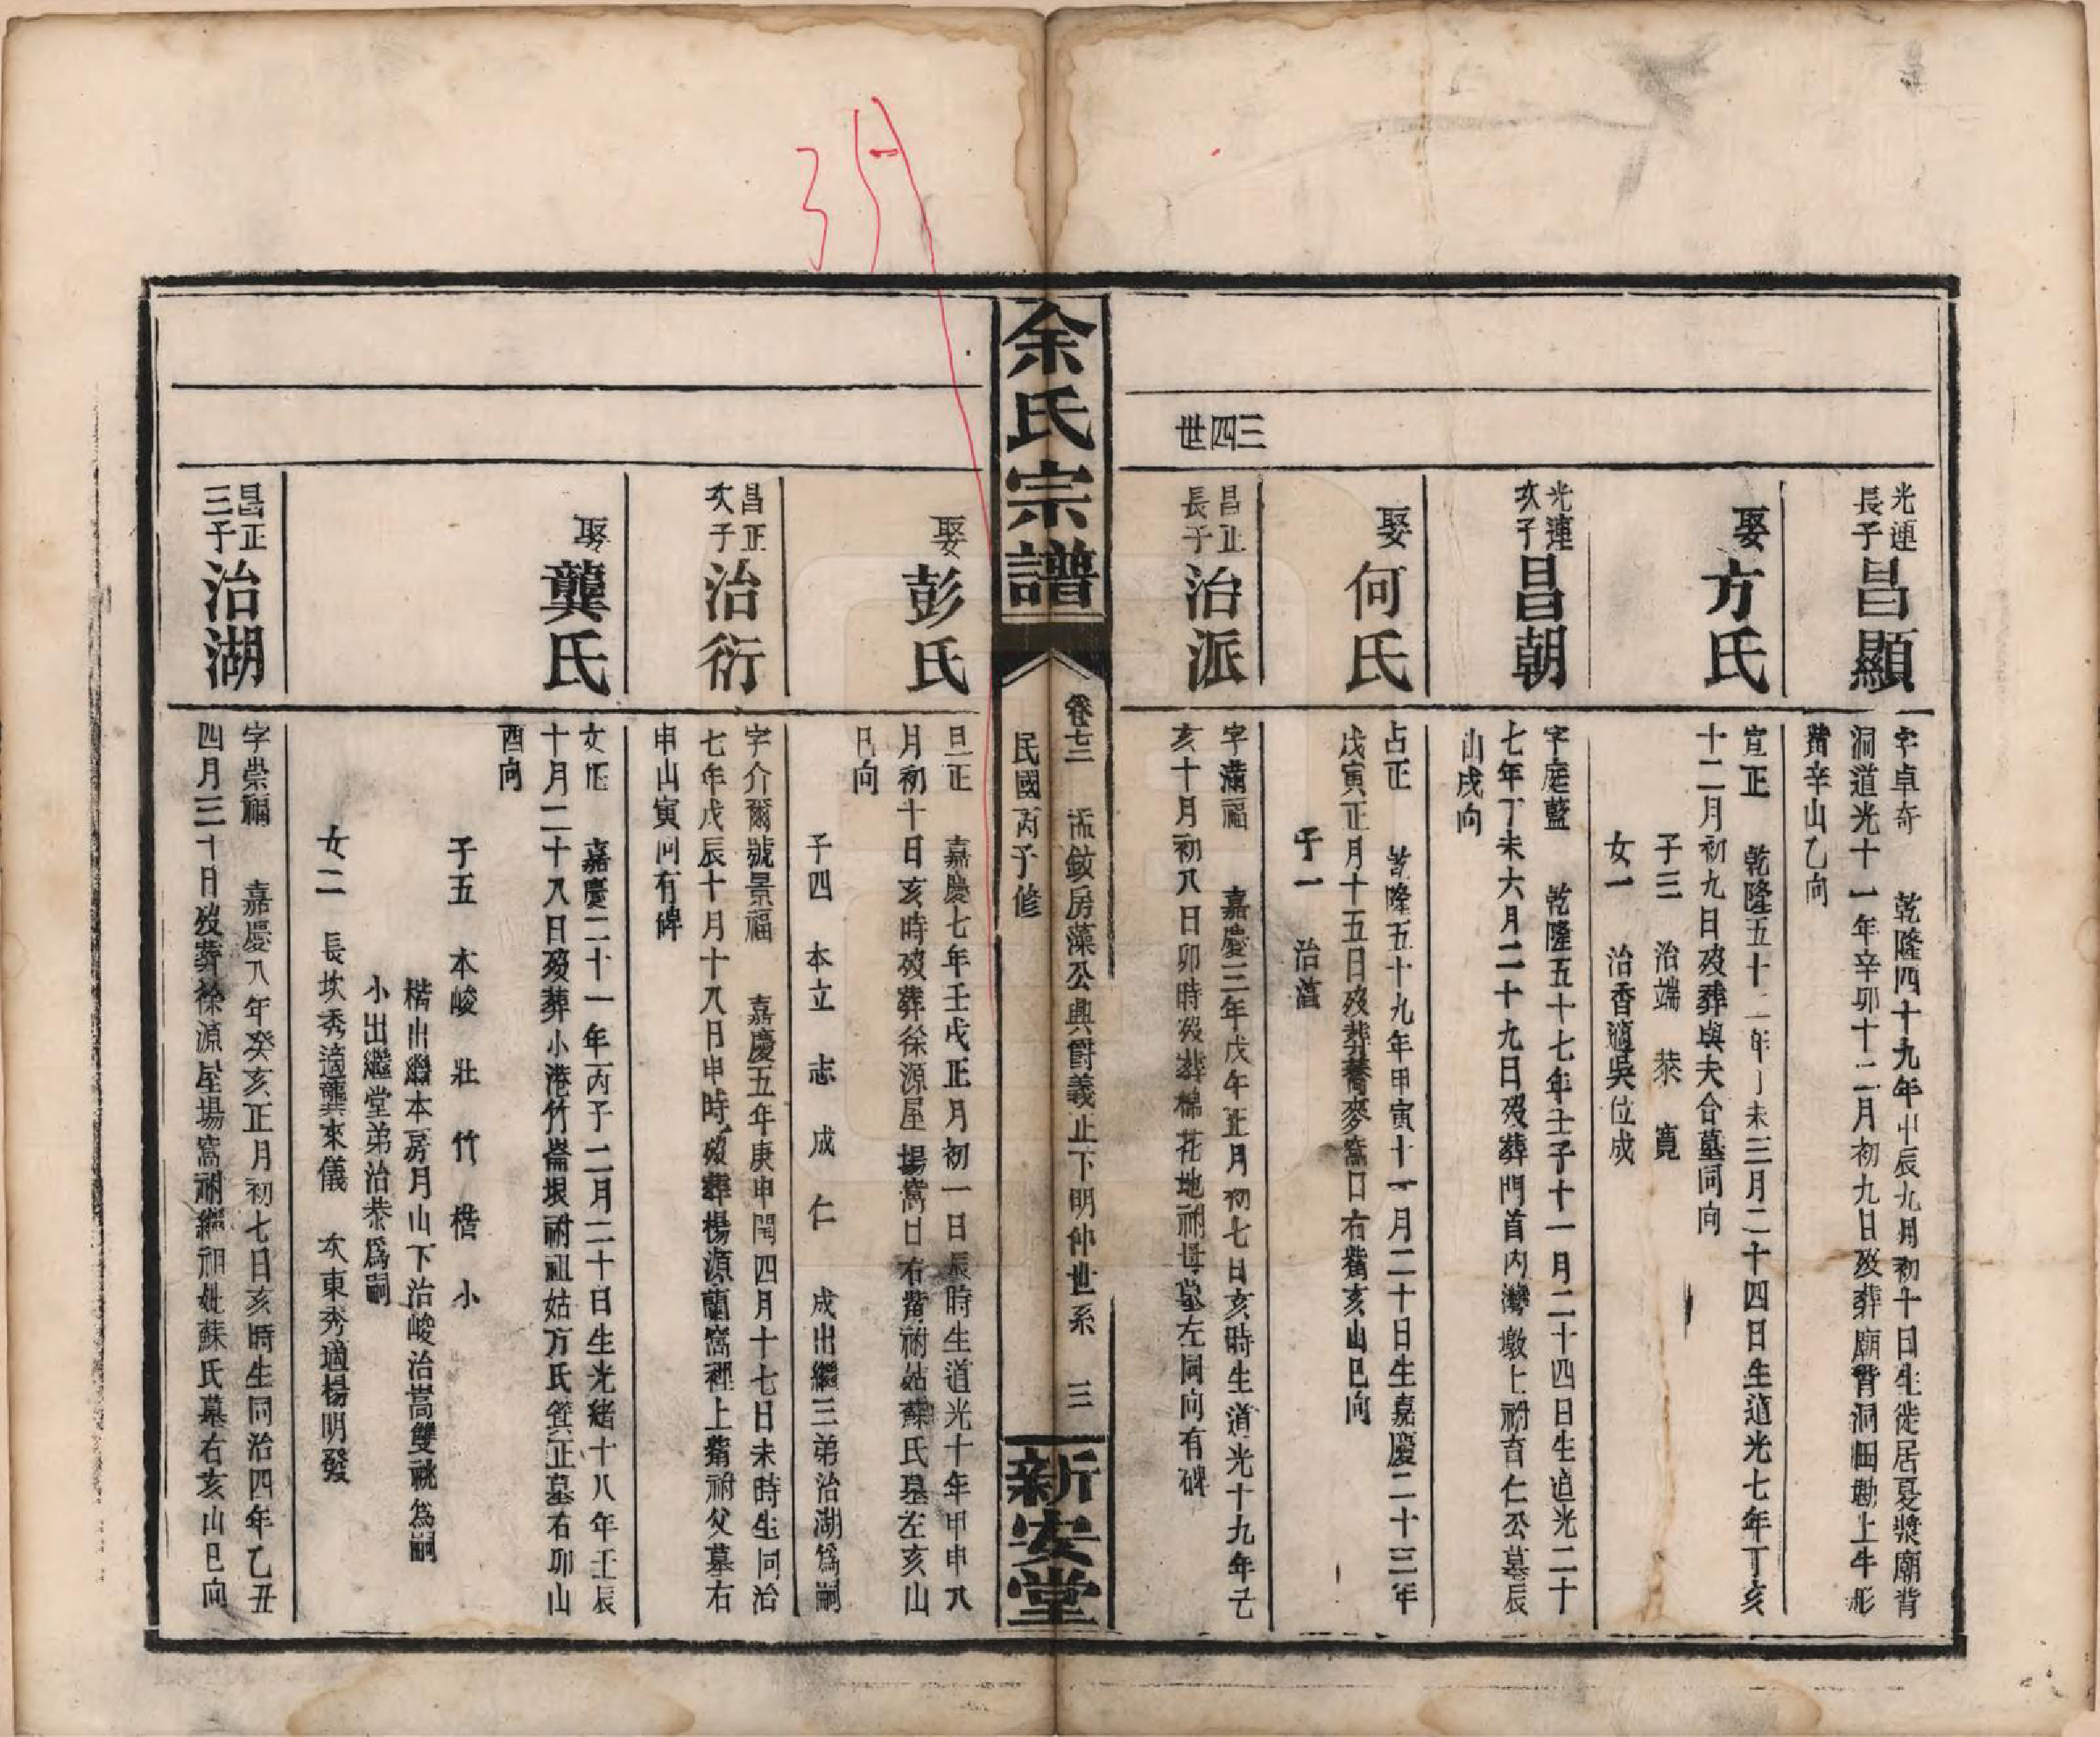 光連
長子
昌顯
字卓奇　乾隆四十九年甲辰九月初十日生徙居夏漿廟背
洞道光十一年辛卯十二月初九日歿葬廟背洞細勘上牛形
嘴辛山乙向
娶
方氏
宜正　乾隆五十二年丁未三月二十四日生道光七年丁亥
十二月初九日歿葬與夫合墓同向
子三　治端　泰　寬
女一　治香適吳位成
光連
次子
昌朝
字庭藍　乾隆五十七年壬子十一月二十四日生道光二十
七年丁未六月二十九日歿葬門首內灣墩上祔育仁公墓辰
山戌向
娶
何氏
占正　乾隆五十九年甲寅十一月二十日生嘉慶二十三年
戊寅正月十五日歿葬蕎麥窩口右嘴亥山巳向
子一　治菖
三四世
昌正
長子
治派
字滿福　嘉慶三年戊午正月初七日亥時生道光十九年己
亥十月初八日卯時歿葬棉花地祔母墓左同向有碑
余氏宗譜
卷七三　孟敛房藻公興爵義正下明仲世系　三
民國丙子修
新安堂
娶
彭氏
旦正　嘉慶七年壬戌正月初一日辰時生道光十年甲申八
月初十日亥時歿葬徐源屋場窩口右嘴祔姑蘇氏墓左亥山
巳向
子四　本立　志　成　仁　成出繼三弟治湖爲嗣
昌正
次子
治衍
字介爾號景福　嘉慶五年庚申閏四月十七日未時生同治
七年戊辰十月十八日申時歿葬楊源蘭窩裡上嘴祔父墓右
申山寅向有碑
娶
龔氏
女正　嘉慶二十一年丙子二月二十日生光緒十八年壬辰
十月二十八日歿葬小港竹崙垠祔祖姑方氏簨正墓右卯山
酉向
子五　本峻　壯　竹　楷　小
楷出繼本房月山下治峻治嵩雙祧爲嗣
小出繼堂弟治恭爲嗣
女二　長坎秀適龔來儀　次東秀適楊明發
昌正
三子
治湖
字崇福　嘉慶八年癸亥正月初七日亥時生同治四年乙丑
四月三十日歿葬徐源屋場窩祔繼祖妣蘇氏墓右亥山巳向